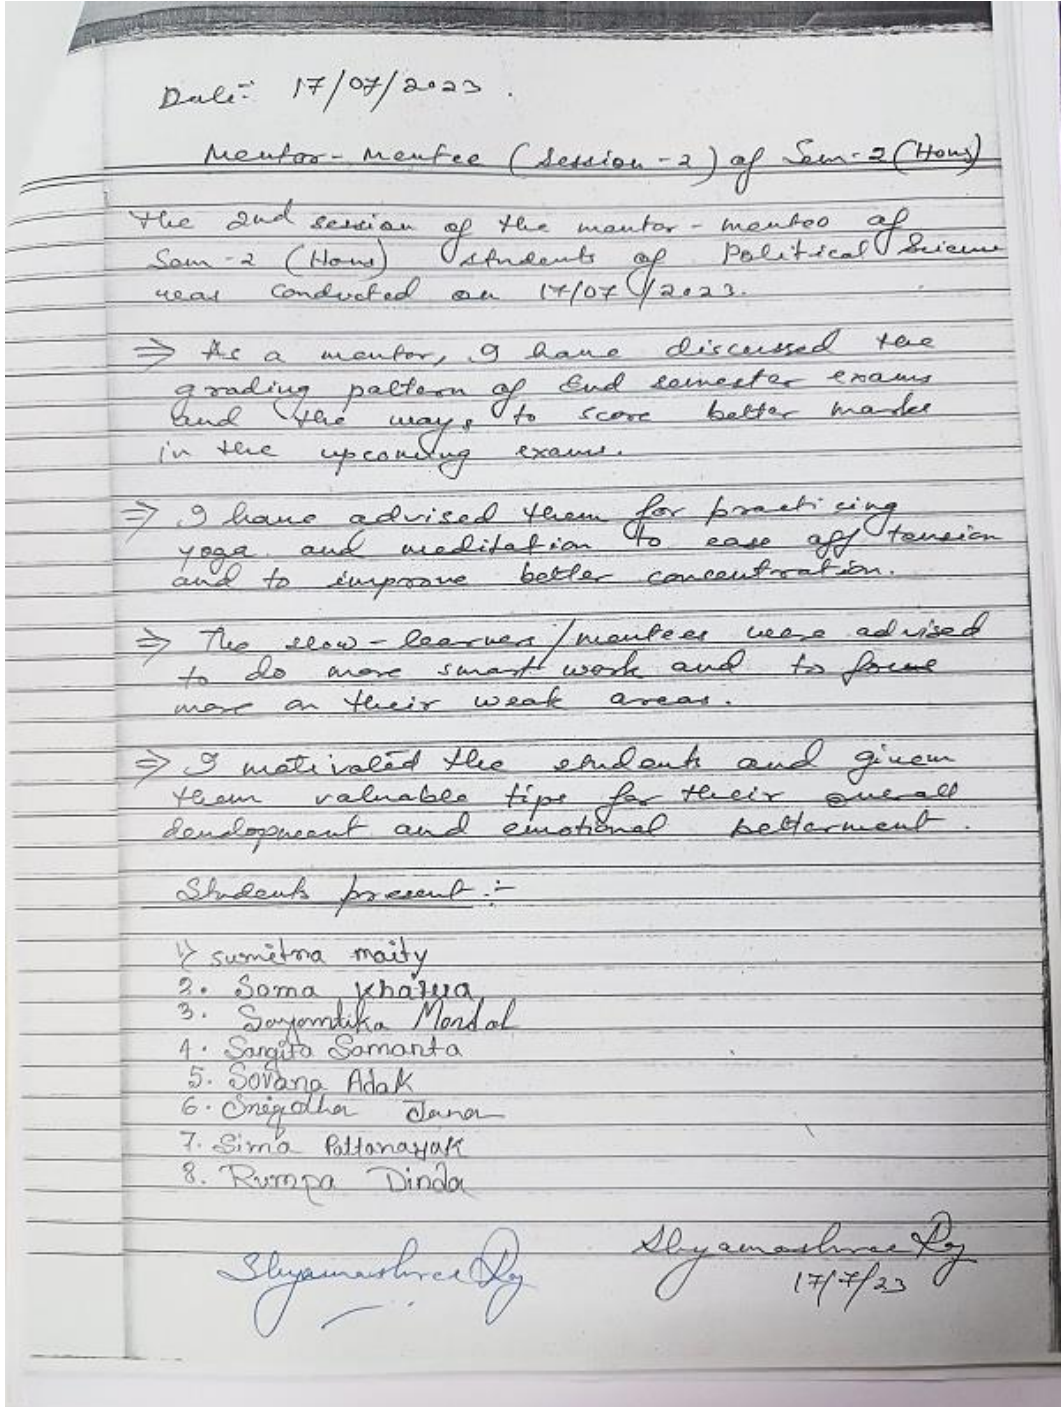 Date:- 17/07/2023.
Mentor-Mentee (Session-2) of Sem-2 (Hons)
The 2nd session of the mentor-mentee of
Sem-2 (Hons) students of Political Science
was conducted on 17/07/2023.
⇒ As a mentor, I have discussed the
grading pattern of End semester exams
and the ways to score better marks
in the upcoming exams.
⇒ I have advised them for practicing
yoga and meditation to ease off tension
and to improve better concentration.
⇒ The slow-learners/mentees were advised
to do more smart work and to focus
more on their weak areas.
⇒ I motivated the students and given
them valuable tips for their overall
development and emotional betterment.
Students present:-
1) Sumitra maity
2. Soma Khatua
3. Sayantika Mondal
4. Sangita Samanta
5. Sovana Adak
6. Snigdha Jana
7. Sima Pattanayak
8. Rumpa Dinda
Shyamashree Roy Shyamashree Roy
17/7/23